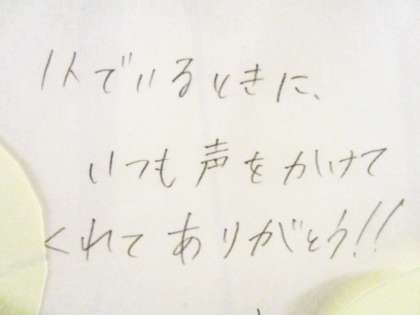 1人でいるときに、
いつも声をかけて
くれてありがとう!!